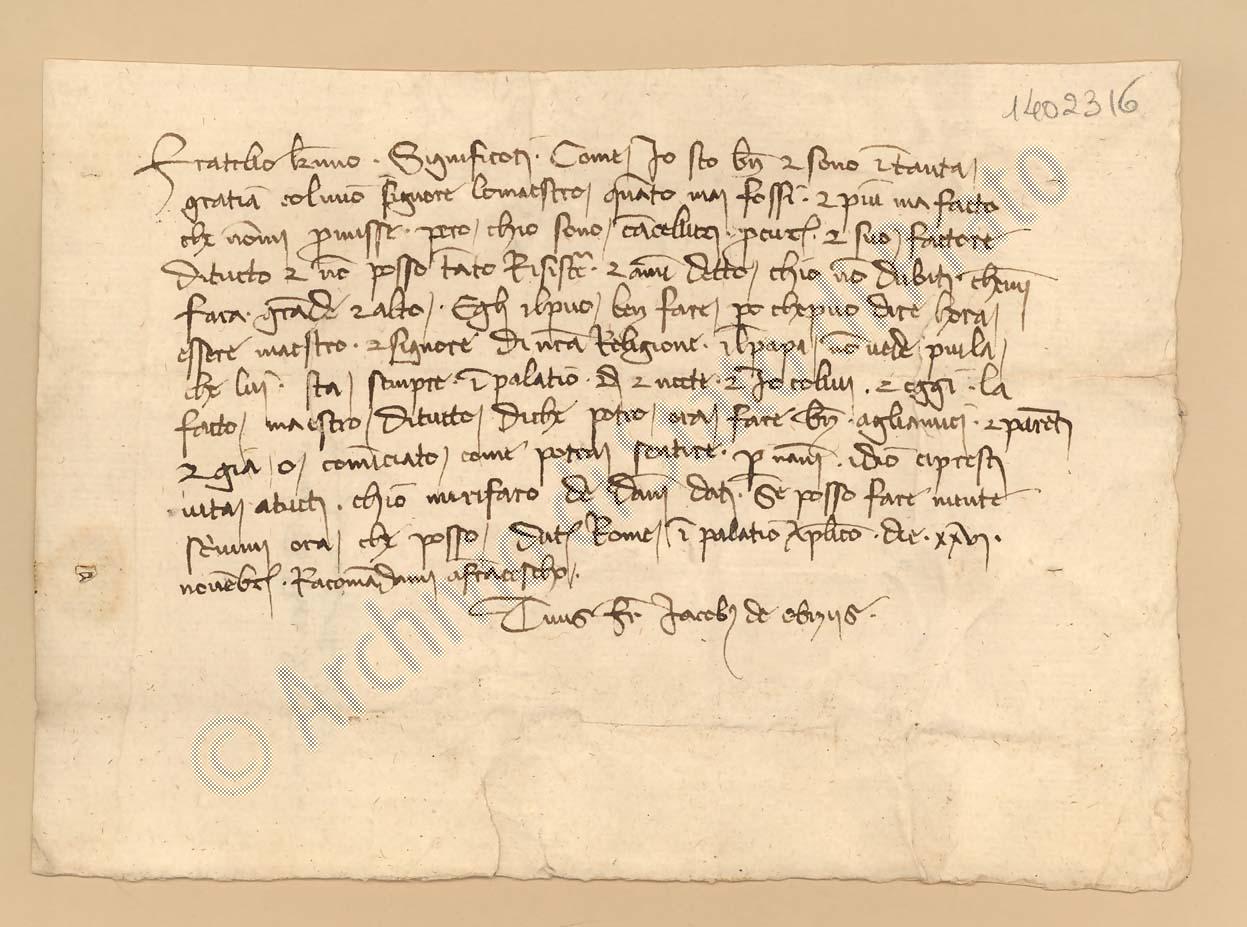 1402316
Fratello k͞mo . Significoti . Come Jo sto bn̄ et sono ī tanta
gratiā col mıo signore lo maestro quāto mai fossi . et piu ma facto
che nōmi p̄misse . pero chio sono cācellieri . p̄cur̄ . et suo factore
di tucto et nō posso tāto Risist͞e . et āmi detto chio nō dubiti chemi
fara grāde et alto . Egli il puo ben fare po che puo dire hora
essere maestro . et signore di nr̄a Religione . il papa nō vede p̄ıı la
che lui . sta sempre . ī palatio . dì et nocte . et Jo collui . et oggi . la
facto maestro di tucto di che potro ora fare bn̄ . agliamici . et parēti
et gia o comīciato come potrai sentire . p nāni . idio ci presti
vita a tucti . chio mi rifaro de dāni dati . Se posso fare niente
scrivimi ora che posso Dat̄ Rome ī palatio Apl̄ico . die . xxvi .
novēbr̄ . Racomādami a francescho .
Tuus fr̄ Jacobꝫ de
© Archivio di Stato di Prato